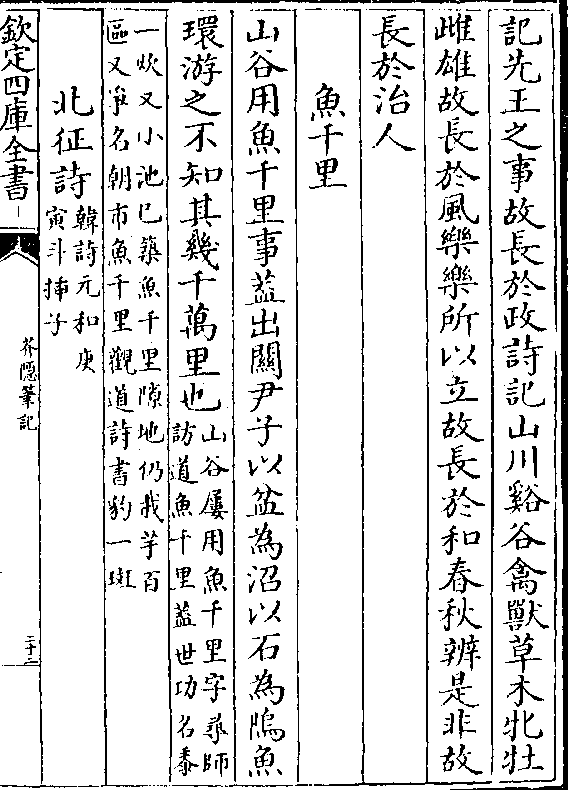 記先王之事故長於政詩記山川谿谷禽獸草木牝牡
雌雄故長於風樂樂所以立故長於和春秋辨是非故
長於治人
魚千里
山谷用魚千里事葢出關尹子以盆為沼以石為㠀魚
環游之不知其幾千萬里也山谷屢用魚千里字尋師
訪道魚千里葢世功名黍
一炊又小池已築魚千里隙地仍栽芋百
區又爭名朝市魚千里觀道詩書豹一斑
北征詩韓詩元和庚
寅斗揷子
欽定四庫全書
芥隱筆記
二十三